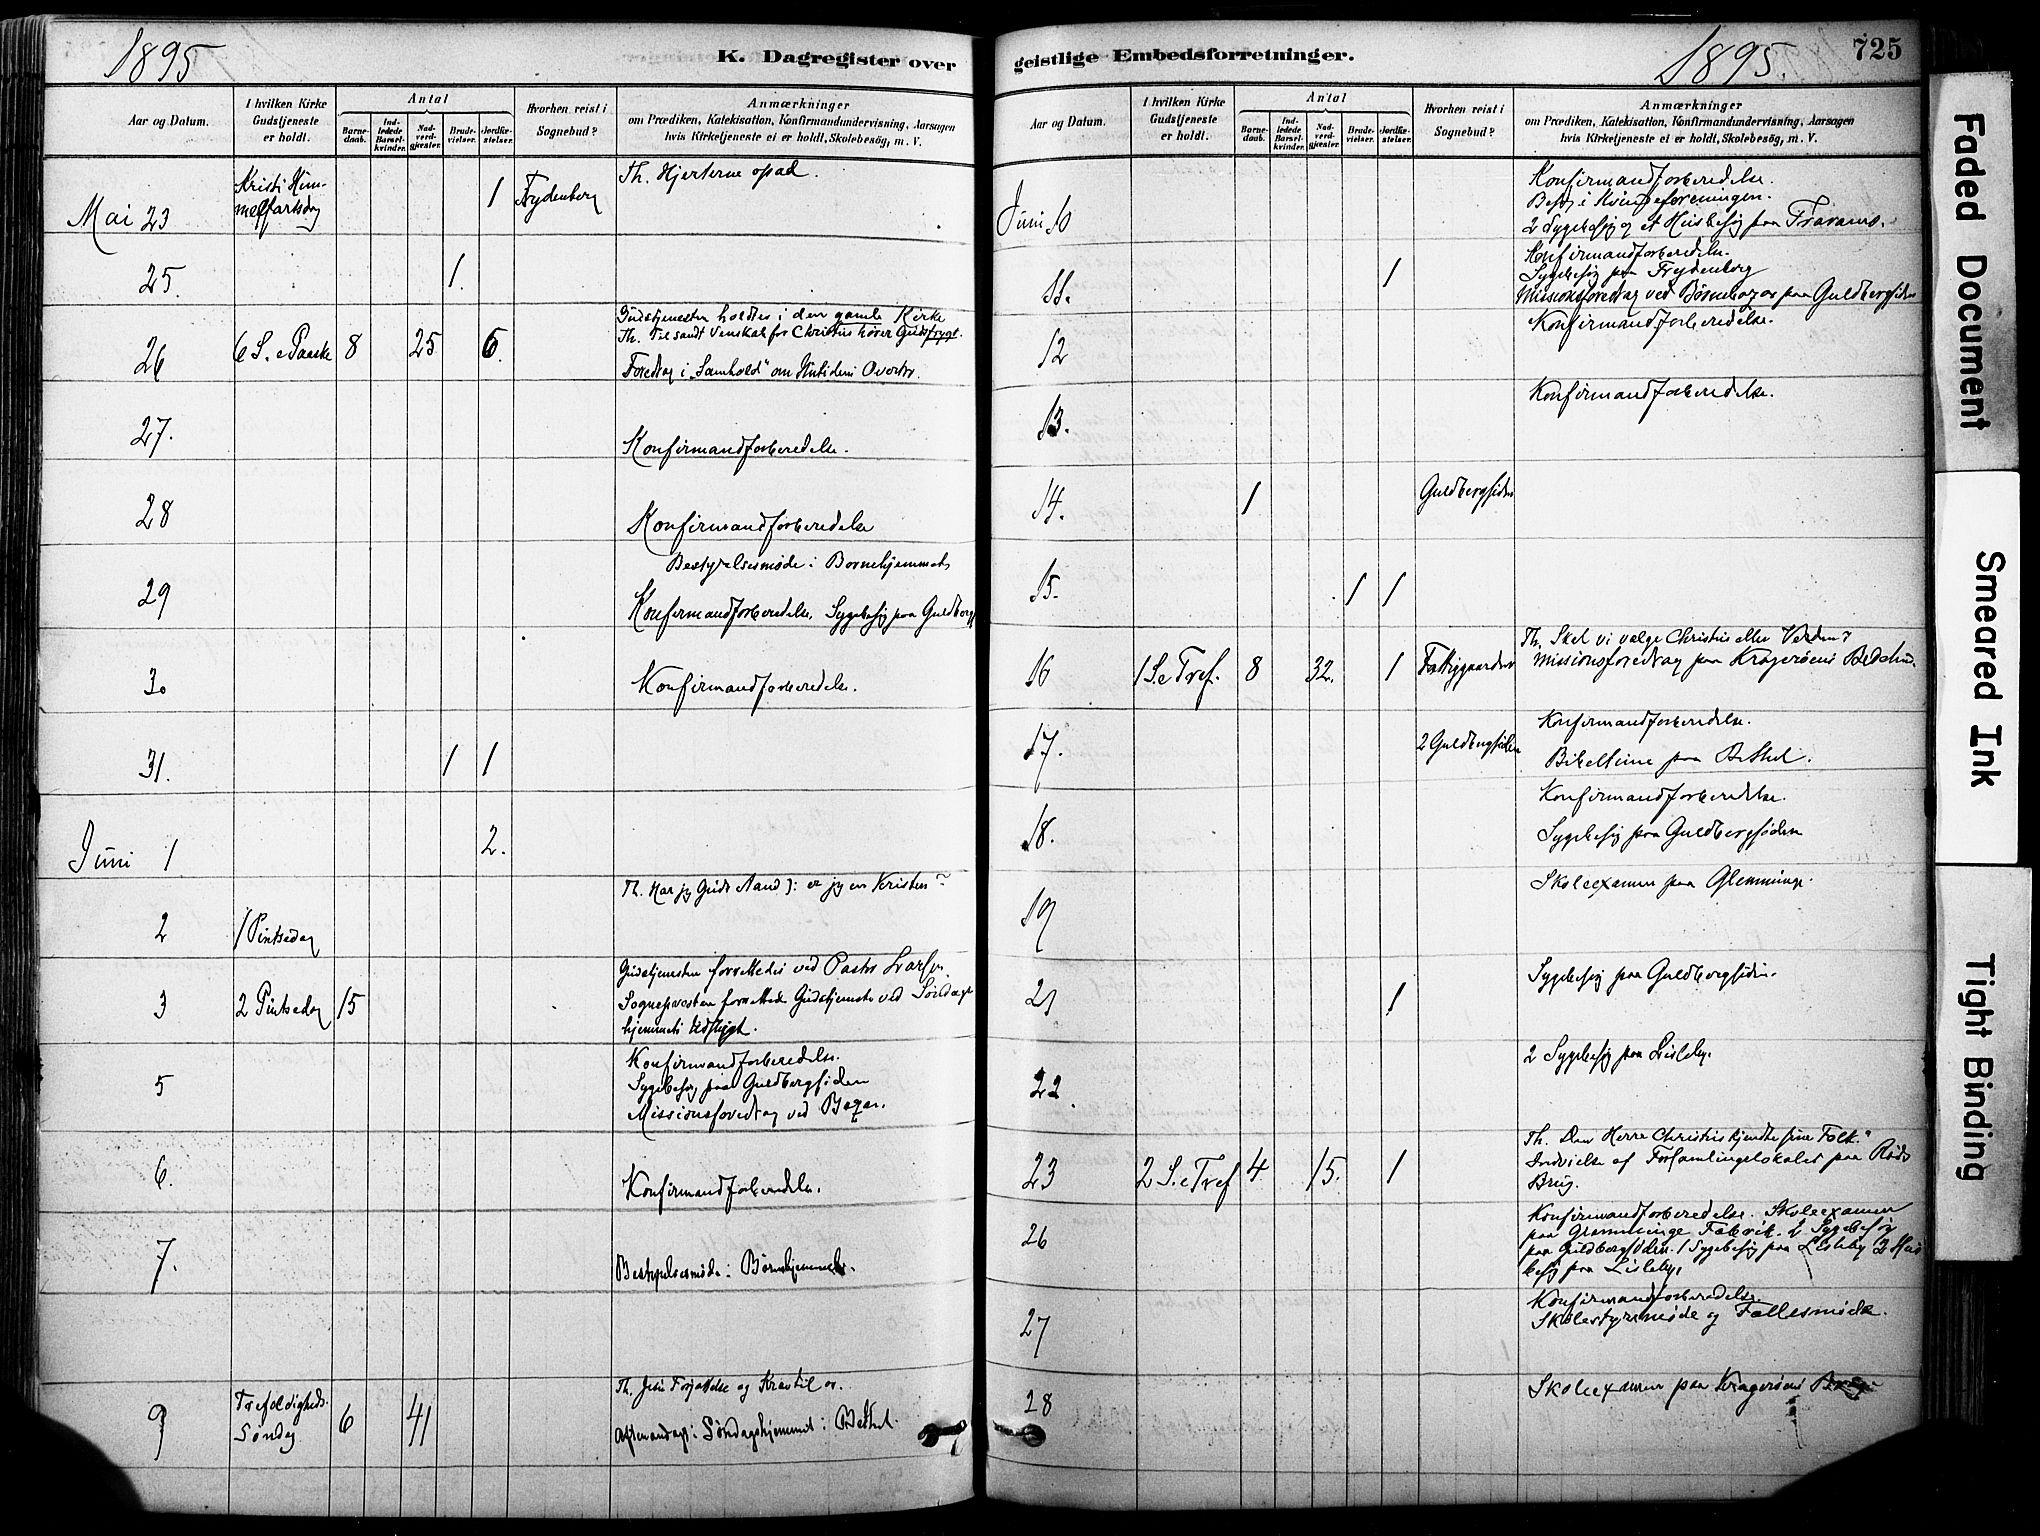 1895
K. Dagregister over
Aar og Datum.
I hvilken Kirke Gudstjeneste er holdt.
Antal
Barnedaab.
Indledede Barselkvinder.
Nadverdgjæster.
Brudevielser.
Jordfæstelser.
Hvorhen reist i Sognebud?
Anmærkninger
om Prædiken, Katekisation, Konfirmandundervisning, Aarsagen
hvis Kirketjeneste ei er holdt, Skolebesøg, m. V.
Mai 23 Kristi Himmelfartsdag 1 Frydenberg Th. Hjerterne opad.
25. 1.
26 6 S. e Paaske 8 25 6. Gudstjenesten holdtes i den gamle Kirke
Th. Til sandt Venskab for Christus hører Gudsfrygt.
Foredrag i "Samhold" om
27. Konfirmandforberedelse.
28 Konfirmandforberedelse
29 Bestyrelsesmøde i Børnehjemmet
Konfirmandforberedelse, Sygebesøg paa Guldberg
30 Konfirmandforberedelse.
31. 1 1
Juni 1 2.
2 1 Pintsedag Th. Har jeg Guds Aand ): er jeg en Kristen?
3 2 Pintsedag 15 Gudstjenesten forrettedes ved Pastor Larsen.
Sognepresten forrettede Gudstjeneste ved Søndags
hjemmets Udflugt.
5 Konfirmandforberedelse.
Sygebesøg paa Guldbergsiden
Missionsforedrag ved Bazar.
6. Konfirmandforberedelse.
7. Bestyrelsesmøde i Børnehjemmet.
9 Trefoldigheds Søndag 6 41 Th. Jesu Forjættelse og Krav til os.
Aftenandagt i Søndagshjemmet i Bethel.
geistlige Embedsforretninger.
1895.
725
Aar og Datum.
I hvilken Kirke Gudstjeneste er holdt.
Antal
Barnedaab.
Indledede Barselkvinder.
Nadverdgjæster.
Brudevielser.
Jordfæstelser.
Hvorhen reist i Sognebud?
Anmærkninger
om Prædiken, Katekisation, Konfirmandundervisning, Aarsagen
hvis Kirketjeneste ei er holdt, Skolebesøg, m. V.
Juni 10 Konfirmandforberedelse.
Besøg i Kvindeforeningen.
2 Sygebesøg og et Husbesøg paa
11. 1 Konfirmandforberedelse.
Sygebesøg paa Frydenberg
Missionsforedrag ved Børnebazar paa Guldbergsiden
12 Konfirmandforberedelse.
13. Konfirmandforberedelse.
14. 1 Guldbergsiden
15. 1 1
16 1 S. e Tref. 8 32. 1 Fattiggaarden Th. Skal vi vælge Christus eller Verden?
Missionsforedrag paa Kragerøens Bedehus.
17. 2 Guldbergsiden Konfirmandforberedelse.
Bibeltime paa Bethel.
18. Konfirmandforberedelse.
Sygebesøg paa Guldbergsiden
19 Skoleexamen paa Glemminge.
21 1 Sygebesøg paa Guldbergsiden.
22. 2 Sygebesøg paa Lisleby.
23 2 S. e Tref 4 15. 1 Th. Den Herre Christus kjendte sine Folk."
Indvielse af Forsamlingslokalet paa Røds
Brug.
26 Konfirmandforberedelse. Skoleexamen
paa Glemminge Fabrik. 2 Sygebesøg
paa Guldbergsiden. 1 Sygebesøg paa Lisleby 2 Hus
besøg paa Lisleby.
27 Konfirmandforberedelse.
Skolestyremøde og Fællesmøde.
28 Skoleexamen paa Kragerøens Brug.
Faded Document
Smeared Ink
Tight Binding